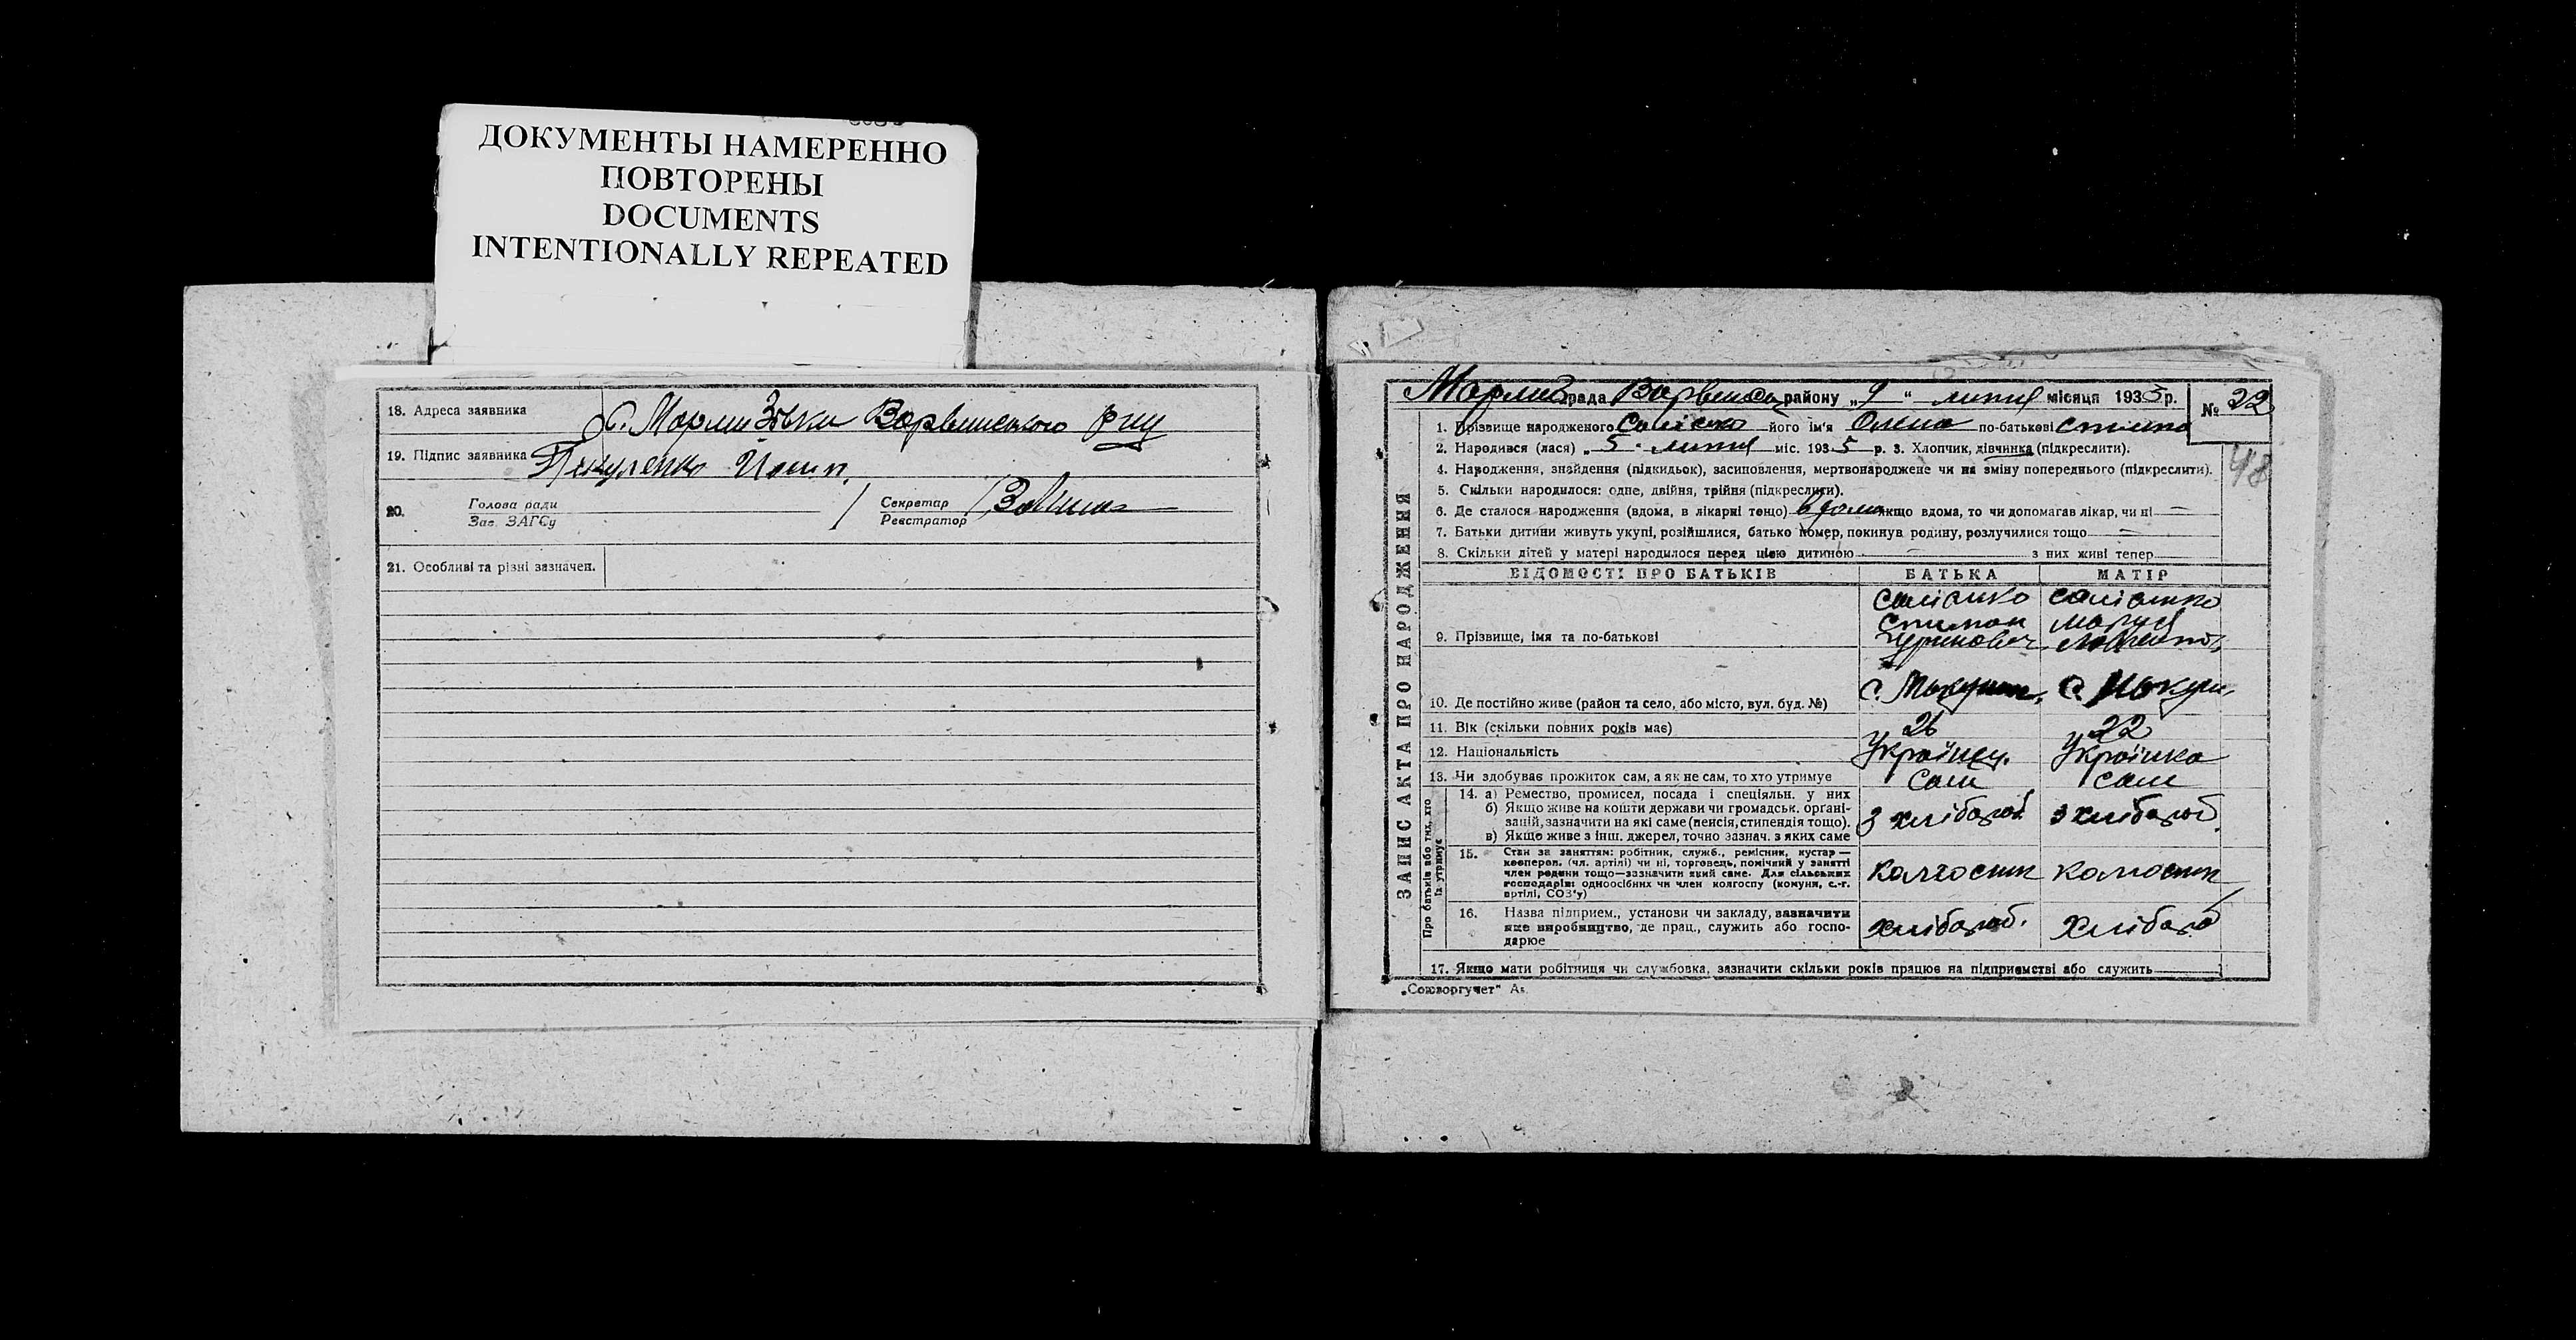 ДОКУМЕНТЫ НАМЕРЕННО
ПОВТОРЕНЫ
DOCUMENTS
INTENTIONALLY REPEATED
18. Адреса заявника с. Варвинського рну
19. Підпис заявника
20. Голова ради
Зав. ЗАГСу
Секретар
Реєстратор
21. Особливі та різні зазначен.
рада району „9“ липня місяця 1933 р. № 22
1. Прізвище народженого його ім'я Олена по-батькові
2. Народився (лася) „5 липня міс. 1935 р. 3. Хлопчик, дівчинка (підкреслити).
48
4. Народження, знайдення (підкидьок), засиновлення, мертвонароджене чи на зміну попереднього (підкреслити).
5. Скільки народилося: одне, двійня, трійня (підкреслити).
6. Де сталося народження (вдома, в лікарні тощо) вдома якщо вдома, то чи допомагав лікар, чи ні —
7. Батьки дитини живуть укупі, розійшлися, батько помер, покинув родину, розлучилися тощо —
8. Скільки дітей у матері народилося перед цією дитиною — з них живі тепер
ЗАПИС АКТА ПРО НАРОДЖЕННЯ
ВІДОМОСТІ ПРО БАТЬКІВ БАТЬКА МАТІР
9. Прізвище, імя та по-батькові
10. Де постійно живе (район та село, або місто, вул. буд. №) с. с.
11. Вік (скільки повних років має) 26 22
12. Національність Українец. Українка
13. Чи здобуває прожиток сам, а як не сам, то хто утримує Сам сам
Про батьків або тих, хто їх утримує
14. а) Ремество, промисел, посада і спеціяльн. у них
б) Якщо живе на кошти держави чи громадськ. орґані-
зацій, зазначити на які саме (пенсія, стипендія тощо).
в) Якщо живе з інш. джерел, точно зазнач. з яких саме
з хлібороб. з хлібороб.
15. Стан за заняттям: робітник, служб., ремісник, кустар—
кооперов. (чл. артілі) чи ні, торговець, помічний у занятті
член родини тощо—зазначити який саме. Для сільських
господарів: одноосібних чи член колгоспу (комуни, с.-г.
артілі, СОЗ'у)
колгоспн колгоспн
16. Назва підприєм., установи чи закладу, зазначити
яке виробництво, де прац., служить або госпо-
дарює
хлібороб. хлібороб
17. Якщо мати робітниця чи службовка, зазначити скільки років працює на підприємстві або служить
„Союзоргучет“